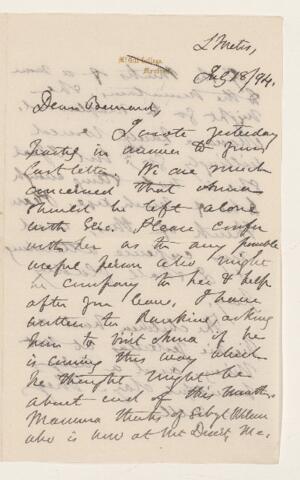 L Metis,
McGill College,
Montreal
July 18/94.
Dear Bernard,
I wrote yesterday
hastily in answer to your
last letter. We are much
concerned that
should be left alone
with Eric. Please confer
with her as to any possible
useful person who might
in company to her & help
after you leave. I have
written to Rankine asking
him to visit if he
is coming this way which
he thought might be
about end of this month.
Mamma thinks of Sibyl
who is now at Mt Desert, Me.